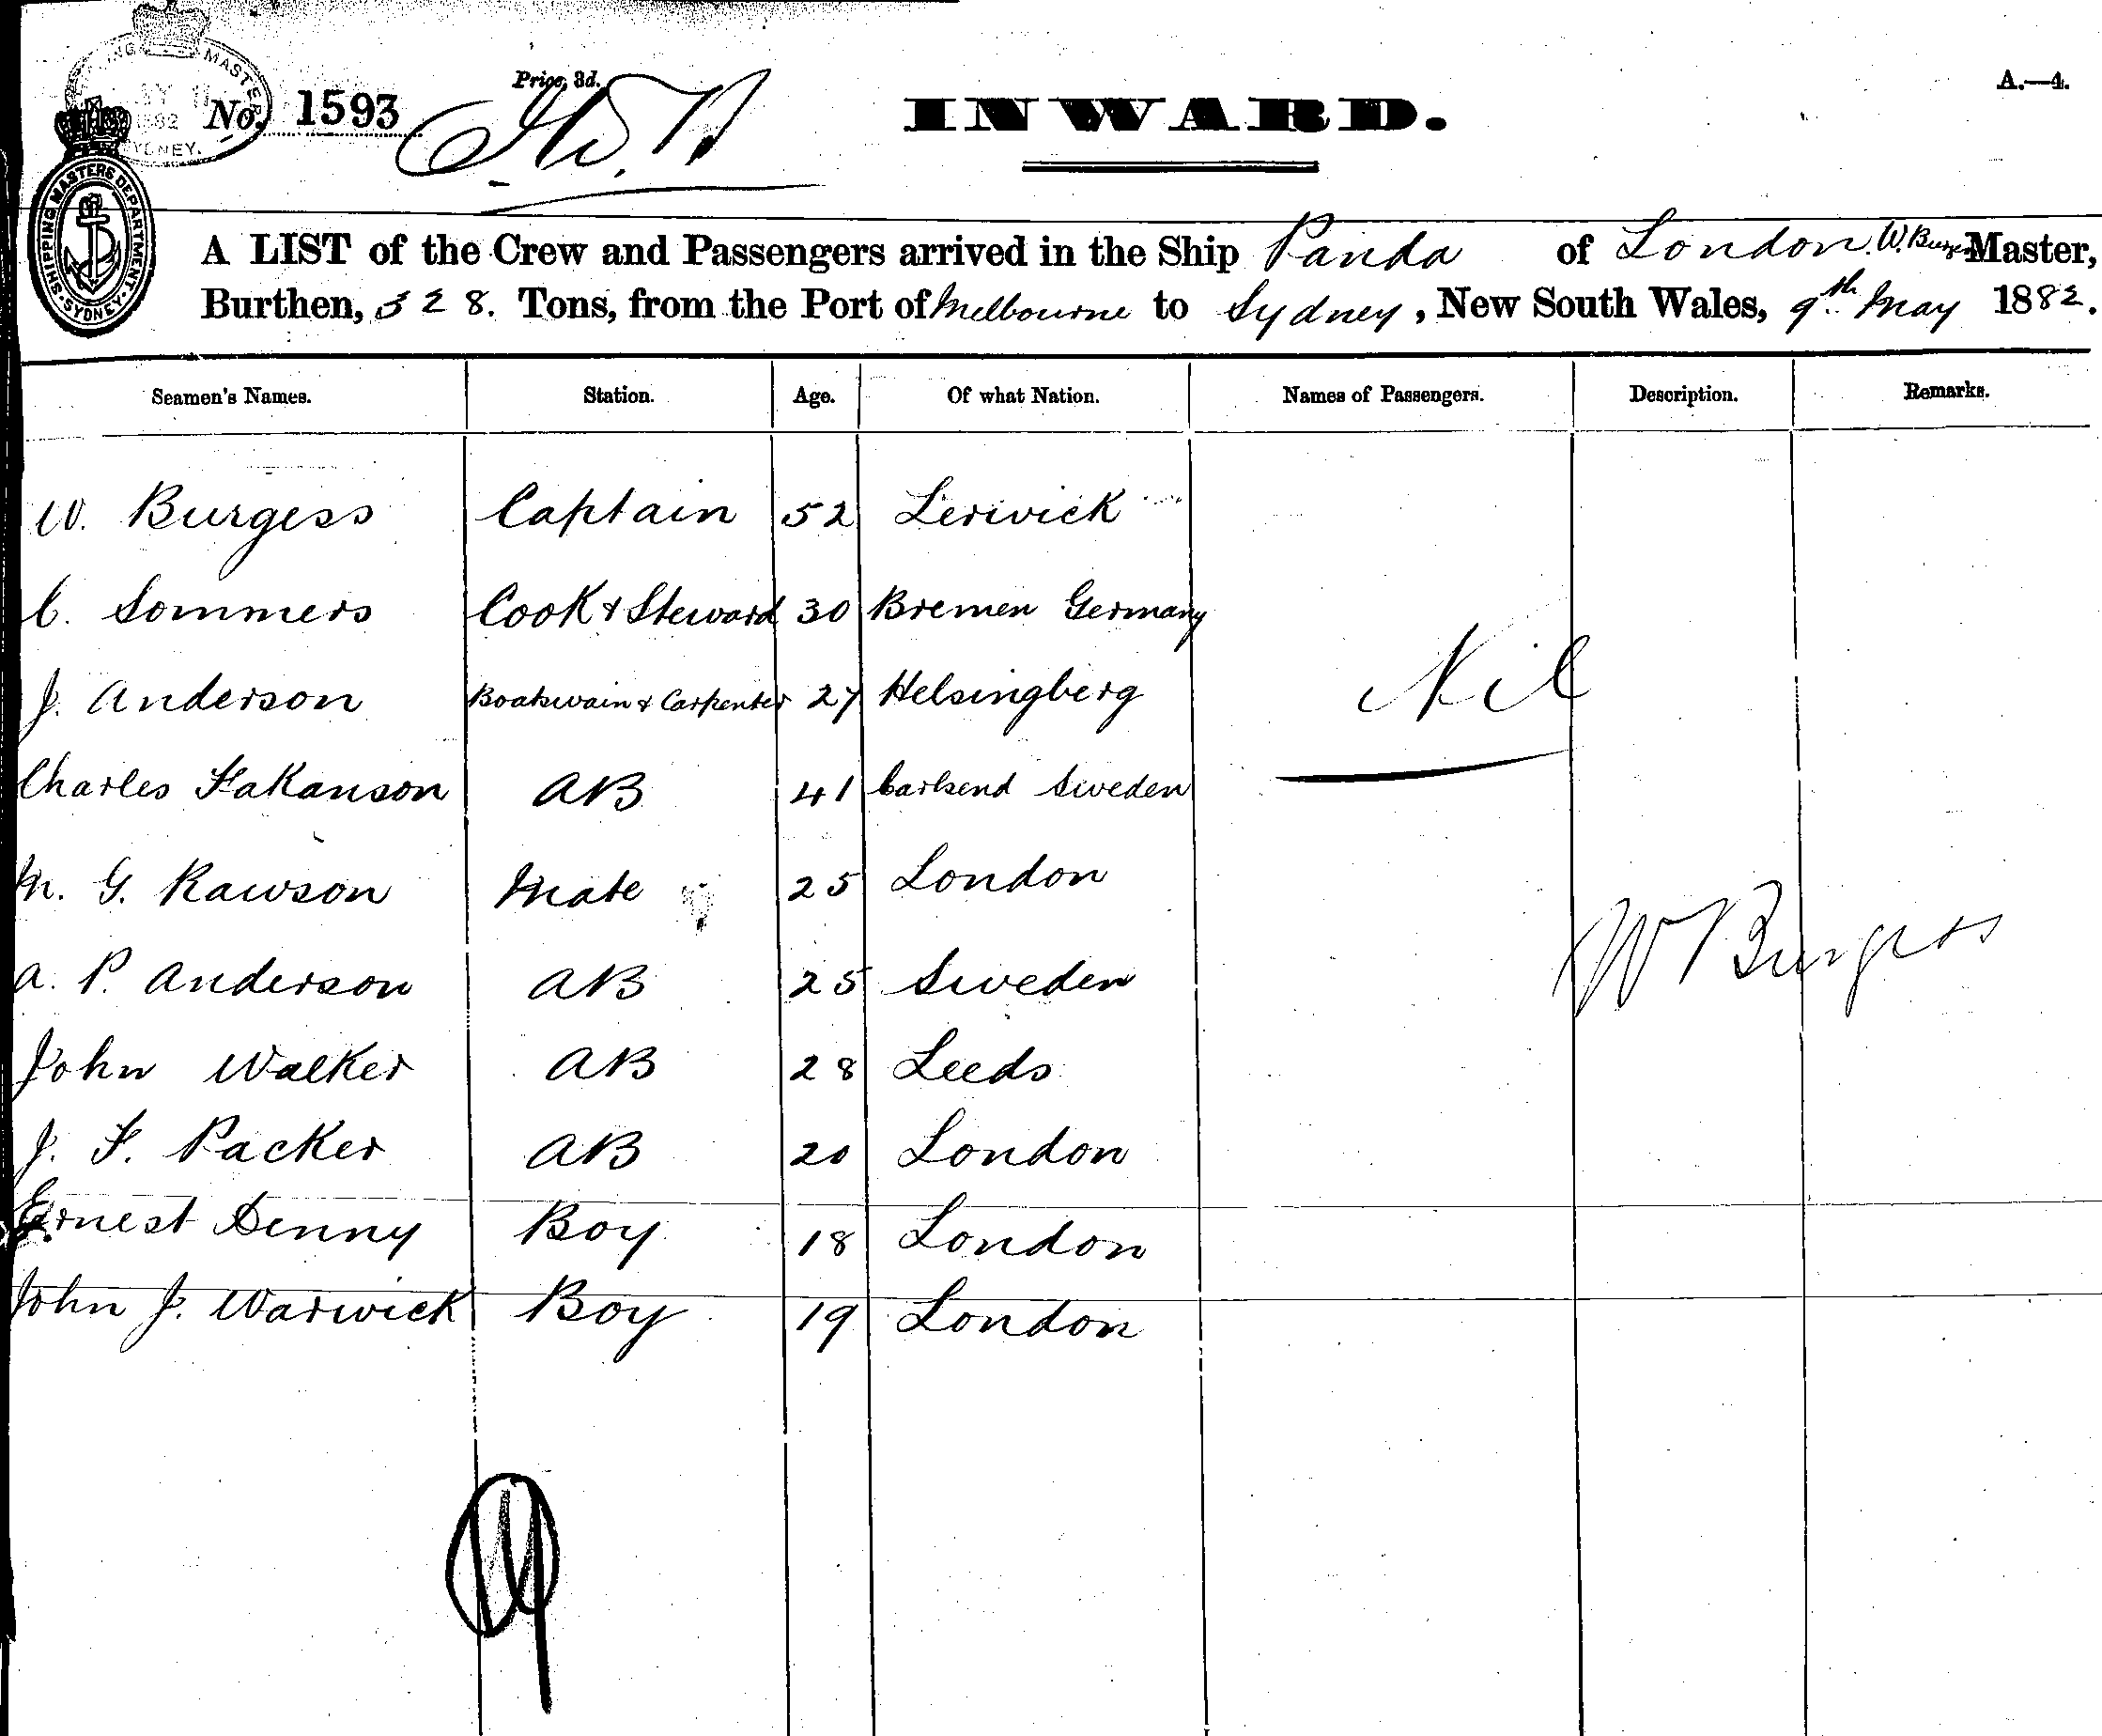 MASTER
1882
SYDNEY.
Price, 3d.
A.—4.
No. 1593
INWARD.
SHIPPING MASTERS DEPARTMENT SYDNEY
A LIST of the Crew and Passengers arrived in the Ship Panda of London. W. Burgess Master,
Burthen, 328. Tons, from the Port of Melbourne to Sydney, New South Wales, 9th May 1882.
Seamen's Names. Station. Age. Of what Nation. Names of Passengers. Description. Remarks.
W. Burgess Captain 52 Lerwick
C. Sommers Cook & Steward 30 Bremen Germany
J. Anderson Boatswain & Carpenter 27 Helsingberg
Nil
Charles Hakanson AB 41 Sweden
M. G. Rawson Mate 25 London
W Burgess
A. P. Anderson AB 25 Sweden
John Walker AB 28 Leeds
J. F. Packer AB 20 London
Ernest Denny Boy 18 London
John J. Warwick Boy 19 London